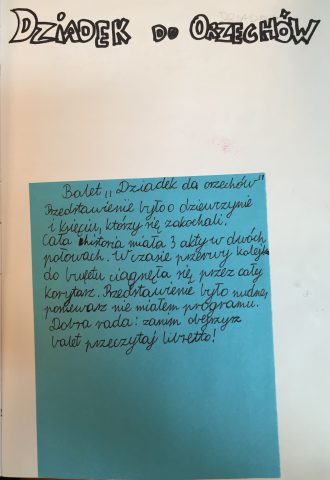 DZIADEK DO ORZECHÓW
Balet „Dziadek do orzechów"
Przedstawienie było o dziewczynie
i księciu, którzy się zakochali.
Cała historia miała 3 akty w dwóch
połowach. W czasie przerwy kolejka
do bufetu ciągnęła się przez cały
korytarz. Przedstawienie było nudne,
ponieważ nie miałem programu.
Dobra rada: zanim obejrzysz
balet przeczytaj libretto!